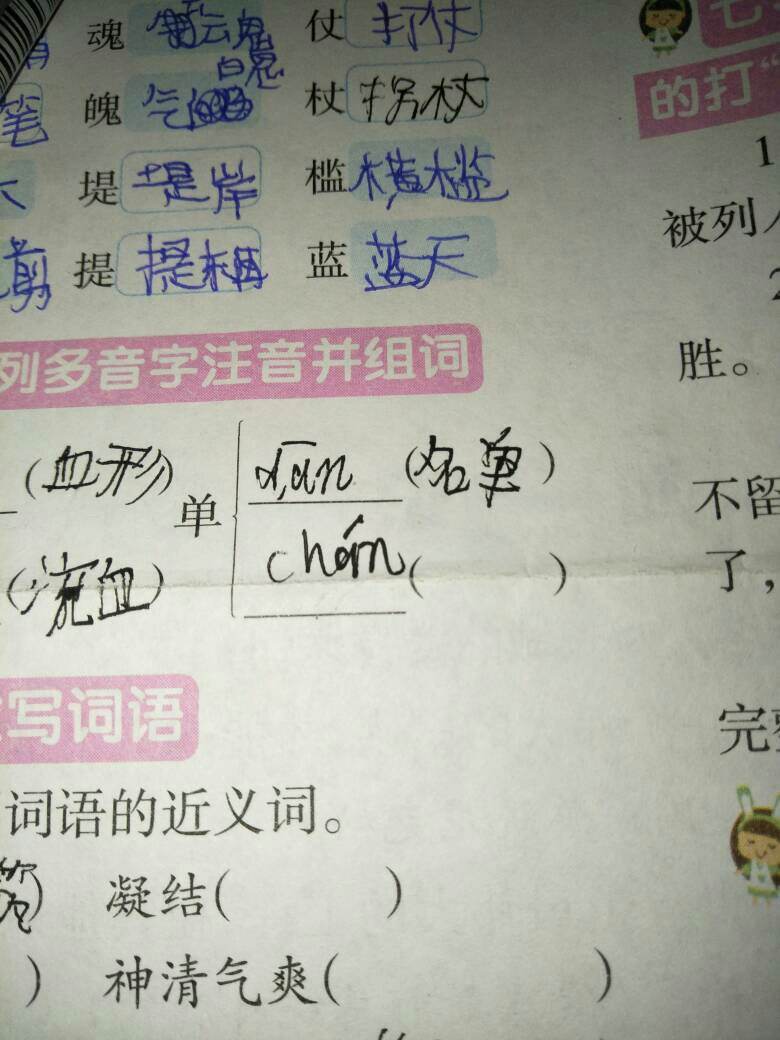 魂 仗 打仗
笔 魄 气 杖 拐杖
堤 堤岸 槛 横槛
剪 提 提 蓝 蓝天
七
的打“
1
被列
胜。
列多音字注音并组词
(血形) 单 dān (名单)
(流血) chán ( )
不留
了，
写词语
词语的近义词。
完整
) 凝结( )
) 神清气爽( )